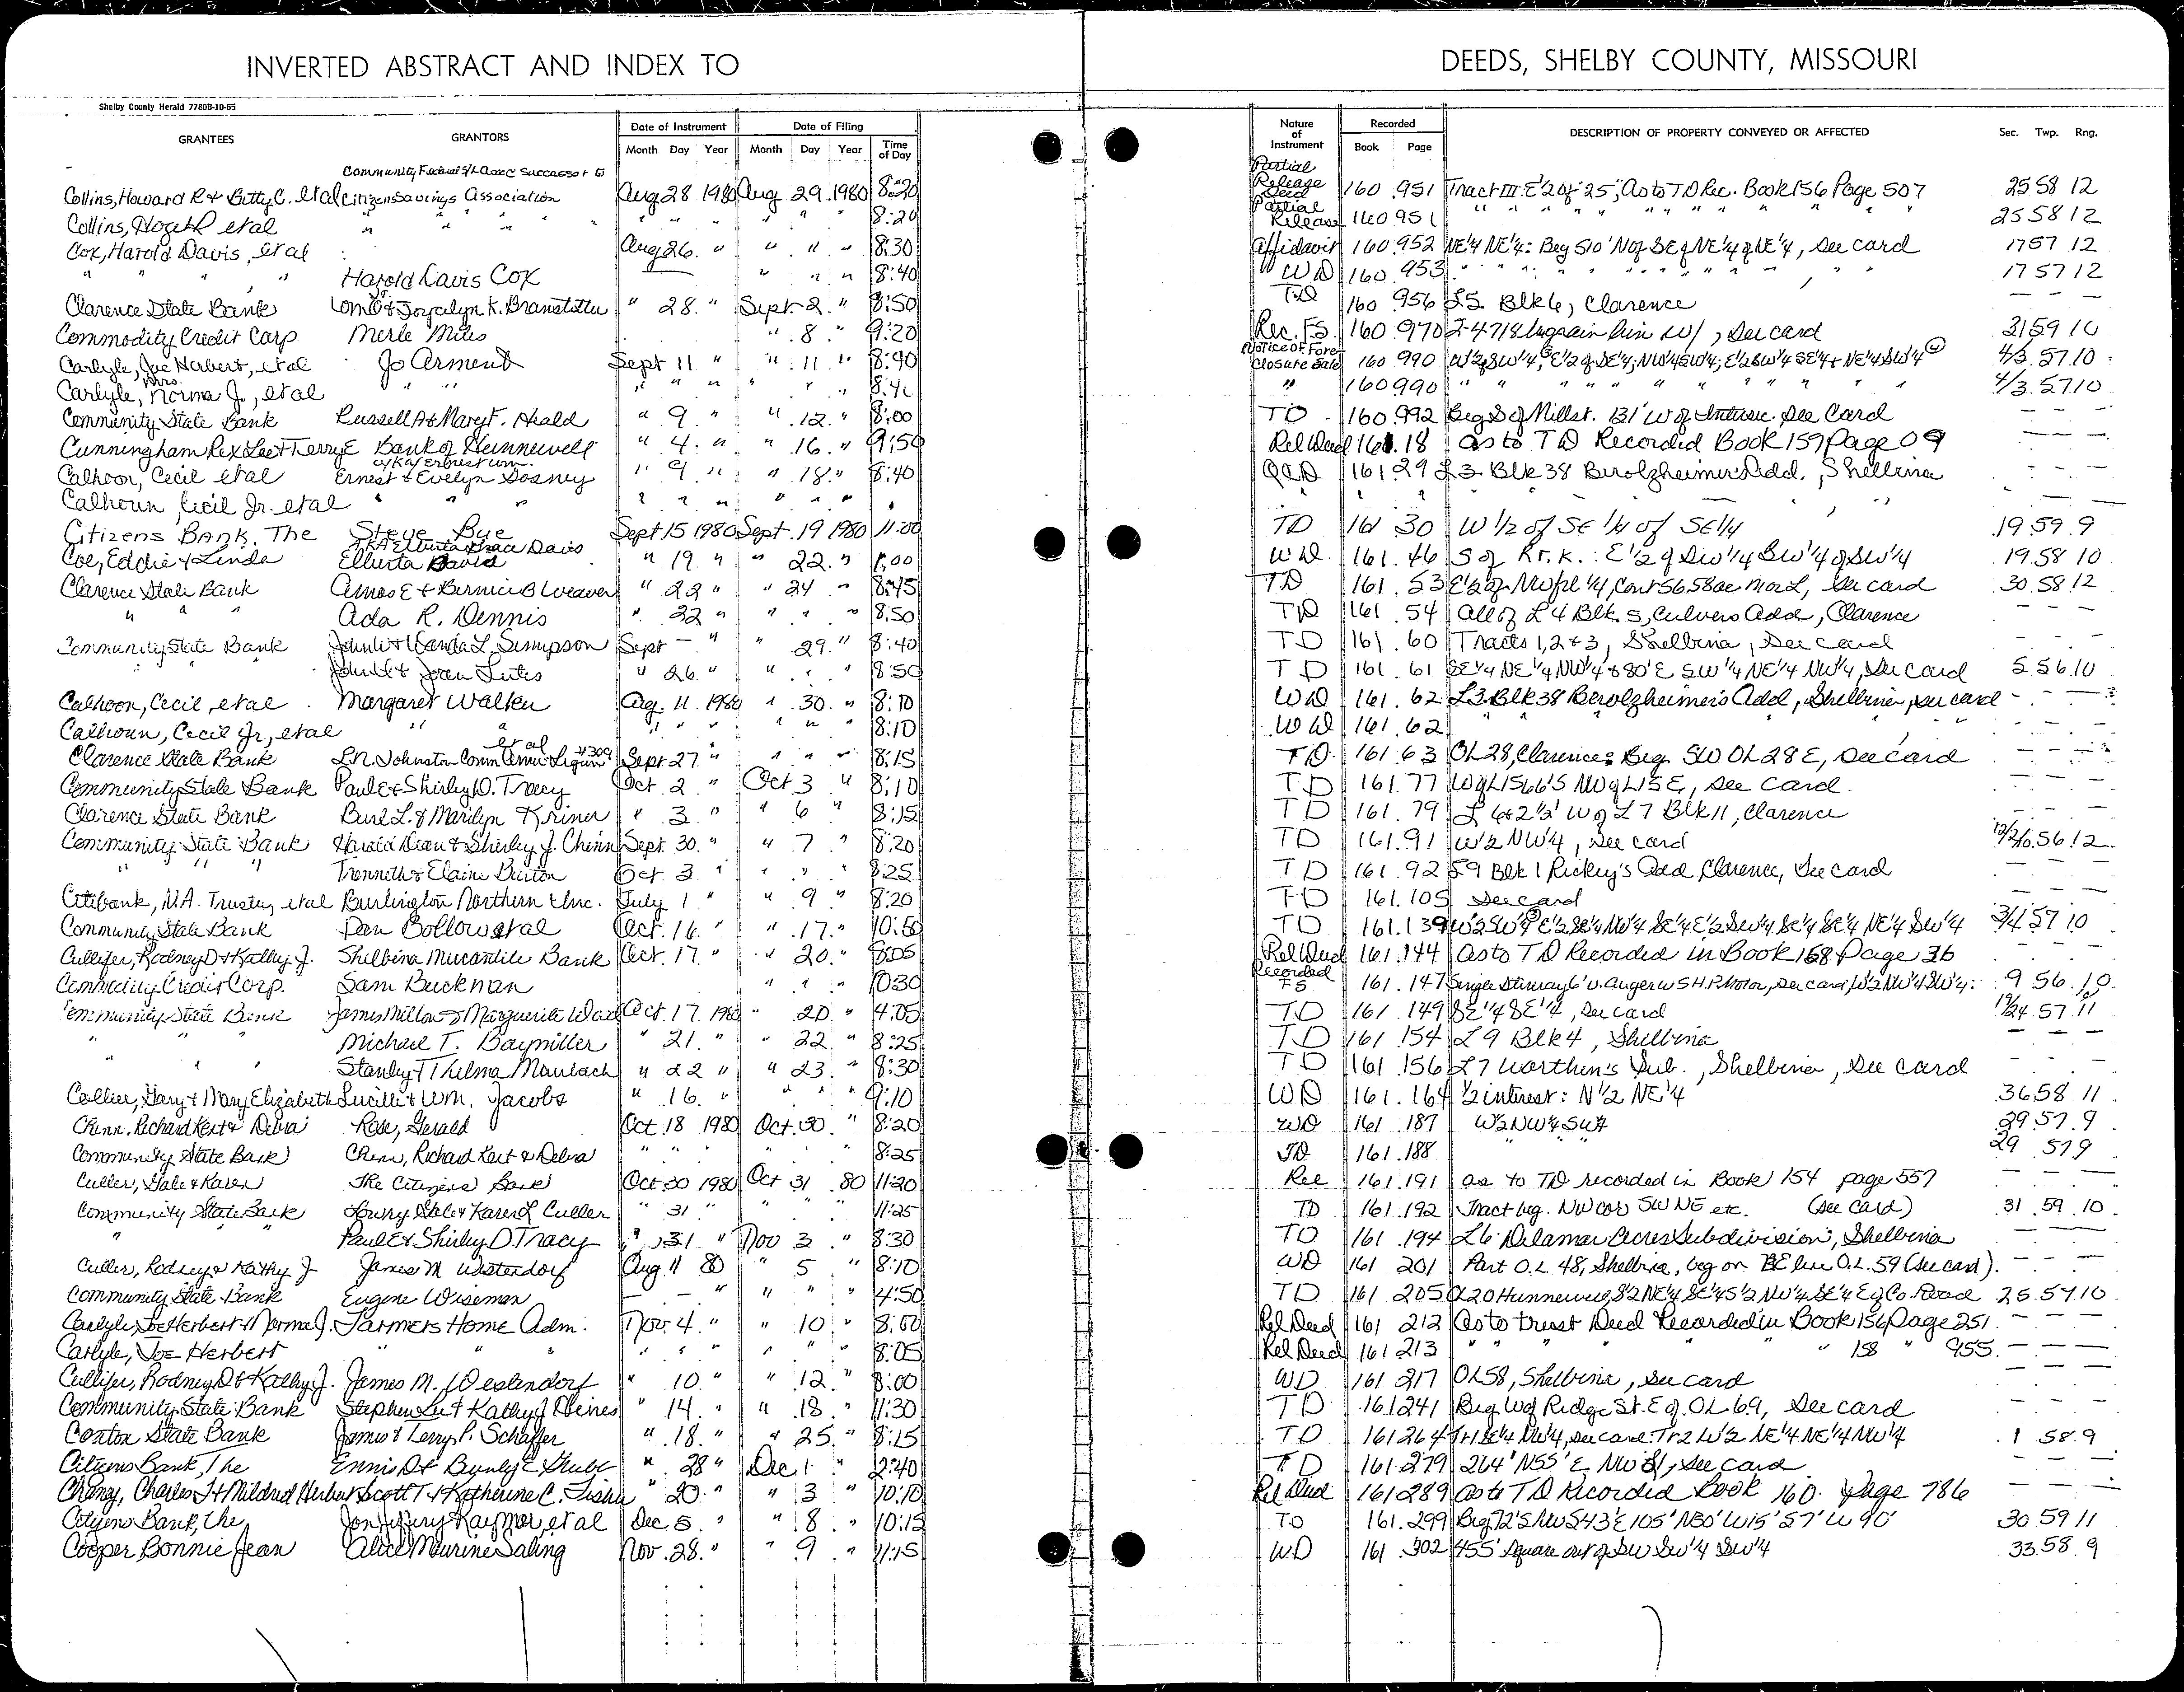 INVERTED ABSTRACT AND INDEX TO DEEDS, SHELBY COUNTY, MISSOURI
Shelby County Herald 7780B-10-65
GRANTEES GRANTORS Date of Instrument Date of Filing Nature of Instrument Recorded DESCRIPTION OF PROPERTY CONVEYED OR AFFECTED Sec. Twp. Rng.
Month Day Year Month Day Year Time of Day Book Page
Community Federal S/L Assoc Successor to Partial
Collins, Howard R & Betty C. etal Citizens Savings Association Aug 28 1980 Aug 29 1980 8:20 Release Deed 160 951 Tract III: E'2 of 25; As to TD Rec. Book 156 Page 507 25 58 12
Collins, etal " " " " " " " " " 8:20 Partial Release 160 951 " " " " " " " " 25 58 12
Cox, Harold Davis, etal Aug 26. " " " " 8:30 Affidavit 160 952 NE'4 NE'4: Beg 510' N of SE of NE'4 of NE'4, See card 17 57 12
" " " Harold Davis Cox " " " 8:40 WD 160 953 " " " " " " " " 17 57 12
Clarence State Bank Lom D & Joycelyn K. Branstetter " 28. " Sept 2. " 8:50 TD 160 956 L5 Blk 6, Clarence — — —
Commodity Credit Corp. Merle Miles " 8 " 9:20 Rec. F.S. 160 970 bin w/, See card 21 59 10
Carlyle, Joe Herbert, etal Jo Arment Sept 11 " " 11 " 8:40 Notice of Foreclosure Sale 160 990 W'2 of SW'4, E'2 of SE'4; NW'4 SW'4; E'2 SW'4 SE'4 & NE'4 SW'4 4/3 57 10
Carlyle, Mrs. Norma J., etal " " " " " " " " 8:40 " 160 990 " " " " " " " " 4/3 57 10
Community State Bank Russell A & Mary F. Heald " 9 " " 12. " 8:00 TD 160 992 Beg S of Mill St. 131' W of Intersc. See Card — — —
Cunningham Rex Lee & Terry E Bank of Hunnewell " 4. " " 16. " 9:50 Rel Deed 161 18 as to TD Recorded Book 159 Page 09 — — —
Calhoon, Cecil etal Ernest & Evelyn Dosney " 9 " " 18. " 8:40 QCD 161 29 L3 Blk 38 Berolzheimers Add., Shelbina
Calhoun, Cecil Jr. etal " " " " " " " " "
Citizens Bank, The Steve Bue Sept 15 1980 Sept. 19 1980 11:00 TD 161 30 W 1/2 of SE 1/4 of SE 1/4 19 59 9
Coe, Eddie & Linda AKA Elberta Grace Davis Ellerta David " 19. " " 22. " 1:00 WD 161. 46 S of Rr. k.: E'2 of SW'4 SW'4 of SW'4 19 58 10
Clarence State Bank Amos E & Bernice B Weaver " 22 " " 24 " 8:45 TD 161. 53 E'2 of NW frl 1/4, Cont 56.58ac Mor L, See card 30 58 12
" " " Ada R. Dennis " 22 " " " " 8:50 TD 161 54 All of L 4 Blk. 5, Culvers Add, Clarence
Community State Bank John W & Wanda L. Simpson Sept — " " 29. " 8:40 TD 161. 60 Tracts 1, 2 & 3, Shelbina, See card
" " John W & Joan Lutes " 26. " " " " 8:50 TD 161. 61 SE'4 NE'4 NW'4 & 80' E SW'4 NE'4 NW'4, See card 5 56 10
Calhoon, Cecil, etal Margaret Walker Aug. 11. 1980 " 30. " 8:10 WD 161. 62 L3 Blk 38 Berolzheimer's Add, Shelbina, see card
Calhoun, Cecil Jr, etal " " " " " " " " 8:10 WD 161. 62 " " "
Clarence State Bank L.N. Johnston Comm Amer Legion #309 et al Sept 27 " " " " 8:15 TD 161 63 OL 28, Clarence; Beg. SW OL 28 E, See card — — —
Community State Bank Paul E & Shirley D. Tracy Oct. 2 " Oct 3 " 8:10 TD 161. 77 W of L 15 66'S NW of L 15 E, See Card. — — —
Clarence State Bank Burl L. & Marilyn Kriner " 3. " " 6 " 8:15 TD 161. 79 L 6 & 2 1/2' W of L 7 Blk 11, Clarence — — —
Community State Bank Harold Dean & Shirley J. Chinn Sept. 30. " " 7. " 8:20 TD 161. 91 W'2 NW'4, See card 56 12
" " " Trennith & Elaine Burton Oct. 3 " " " " 8:25 TD 161. 92 59 Blk 1 Rickey's Add, Clarence, See card — — —
Citibank, N.A. Trustee, etal Burlington Northern Inc. July 1. " " 9 " 8:20 TD 161. 105 See card — — —
Community State Bank Dan Bollow etal Oct. 16. " " 17. " 10:50 TD 161. 139 W'2 SW'4 E'2 SE'4 NW'4 SE'4 E'2 SW'4 SE'4 SE'4 NE'4 SW'4 3/4 57 10
Cullifer, Rodney D & Kathy J. Shelbina Mercantile Bank Oct. 17. " " 20. " 8:05 Rel Deed 161. 144 As to TD Recorded in Book 158 Page 36
Commodity Credit Corp. Sam Buckman " " " 10:30 Recorded FS 161. 147 6" U. Auger w 5 H.P. Motor, See card, W'2 NW'4 NW'4: 9 56. 10
Community State Bank James Millow & Marguerite Oct. 17. 1980 " 20. " 4:05 TD 161. 149 SE'4 SE'4, See card 57 11
" " " Michael T. Baymiller " 21. " " 22. " 8:25 TD 161 154 L 9 Blk 4, Shelbina — — —
" " " Stanley T Thelma Maubach " 22 " " 23. " 8:30 TD 161 156 L 7 Worthen's Sub., Shelbina, See card
Collier, Gary & Mary Elizabeth Lucille & Wm. Jacobs " 16. " " " " 9:10 WD 161. 164 1/2 interest: N'1/2 NE'4 36 58. 11
Chinn, Richard Kent & Debra Rose, Gerald Oct. 18 1980 Oct. 30. " 8:20 WD 161. 187 W'2 NW'4 SW4 29. 57. 9
Community State Bank Chinn, Richard Kent & Debra " " " " " 8:25 TD 161. 188 " " 29 57 9
Culler, Gale & Karen The Citizens Bank Oct 30 1980 Oct 31 80 11:20 Rel 161. 191 as to TD recorded in Book 154 page 557 — — —
Community State Bank Lowry Gale & Karen L Culler " 31 " " " 11:25 TD 161. 192 Tract beg. NW cor SW NE etc. (see card) 31 59. 10
" Paul E & Shirley D Tracy " 31 " Nov 3 " 8:30 TD 161. 194 L 6 Delamar Acres Subdivision, Shelbina — — —
Culler, Rodney & Kathy J James M Westendorf Aug 11 80 " 5 " 8:10 WD 161 201 Part O.L 48, Shelbina, beg on SE line O.L. 59 (see card). — — —
Community State Bank Eugene Wiseman — — " " " " 4:50 TD 161 205 OL 20 Hunnewell, S'2 NE'4 SE'4 S'2 NW'4 SE'4 E of Co. Road 25 57 10
Carlyle, Joe Herbert & Norma J. Farmers Home Adm. Nov. 4. " " 10. " 8:00 Rel Deed 161 212 As to trust Deed Recorded in Book 156 Page 251. — — —
Carlyle, Joe Herbert " " " " " " " " " 8:05 Rel Deed 161 213 " " " " " 158 " 955. — — —
Cullifer, Rodney D & Kathy J. James M. Westendorf " 10. " " 12. " 8:00 WD 161 217 OL 58, Shelbina, See card — — —
Community State Bank Stephen Le & Kathy J Heines " 14. " " 18. " 11:30 TD 161 241 Beg W of Ridge St. E of OL 69, See card — — —
Canton State Bank James & Terry P. Schaffer " 18. " " 25. " 8:15 TD 161 264 Tr 1 SE'4 NW'4, See card: Tr 2 W'2 NE'4 NE'4 NW'4 1 58. 9
Citizens Bank, The Ennis D & " 28 " Dec 1 " 2:40 TD 161. 279 264' N 55' E NW, See card — — —
Charles J & Mildred Herbert Scott T & Katherine C. " 20. " " 3 " 10:10 Rel Deed 161 289 As to TD Recorded Book 160. Page 786 — — —
Citizens Bank, the Jon Jeffery Raymer, etal Dec. 5. " " 8. " 10:15 TD 161. 299 Beg 72'S NW S43'E 105' N50' W15' S7' W 90' 30 59 11
Cooper Bonnie Jean Alice Maurine Saling Nov. 28. " " 9. " 11:15 WD 161. 302 455' Square out of SW SW'4 SW'4 33 58. 9